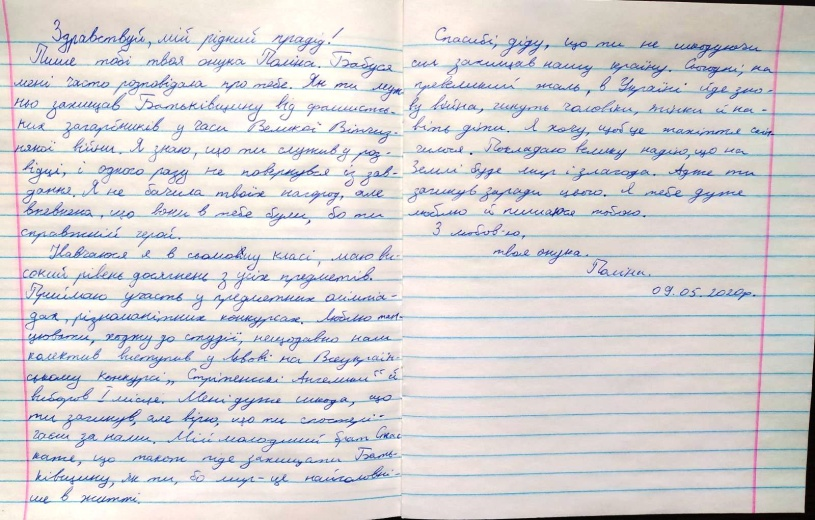 Здравствуй, мій рідний прадід!
Пише тобі твоя онука Поліна. Бабуся
мені часто розповідала про тебе. Як ти муж-
ньо захищав Батьківщину від фашистсь-
ких загарбників у часи Великої Вітчиз-
няної війни. Я знаю, що ти служив у роз-
відці, і одного разу не повернувся із зав-
дання. Я не бачила твоїх нагород, але
впевнена, що вони в тебе були, бо ти
справжній герой.
Навчаюся я в сьомому класі, маю ви-
сокий рівень досягнень з усіх предметів.
Приймаю участь у предметних олімпіа-
дах, різноманітних конкурсах. Люблю тан-
цювати, ходжу до студії, нещодавно наш
колектив виступив у Львові на Всеукраїн-
ському конкурсі „Стрітенські Ангелики" й
виборов І місце. Мені дуже шкода, що
ти загинув, але вірю, що ти спостері-
гаєш за нами. Мій молодший брат
каже, що також піде захищати Бать-
ківщину, як ти, бо мир - це найголовні-
ше в житті.
Спасибі, діду, що ти не шкодуючи
сил захищав нашу країну. Сьогодні, на
превеликий жаль, в Україні йде зно-
ву війна, гинуть чоловіки, жінки й на-
віть діти. Я хочу, щоб це жахіття скін-
чилося. Покладаю велику надію, що на
Землі буде мир і злагода. Адже ти
загинув заради цього. Я тебе дуже
люблю й пишаюся тобою.
З любов'ю,
твоя онука.
Поліна.
09.05.2020р.